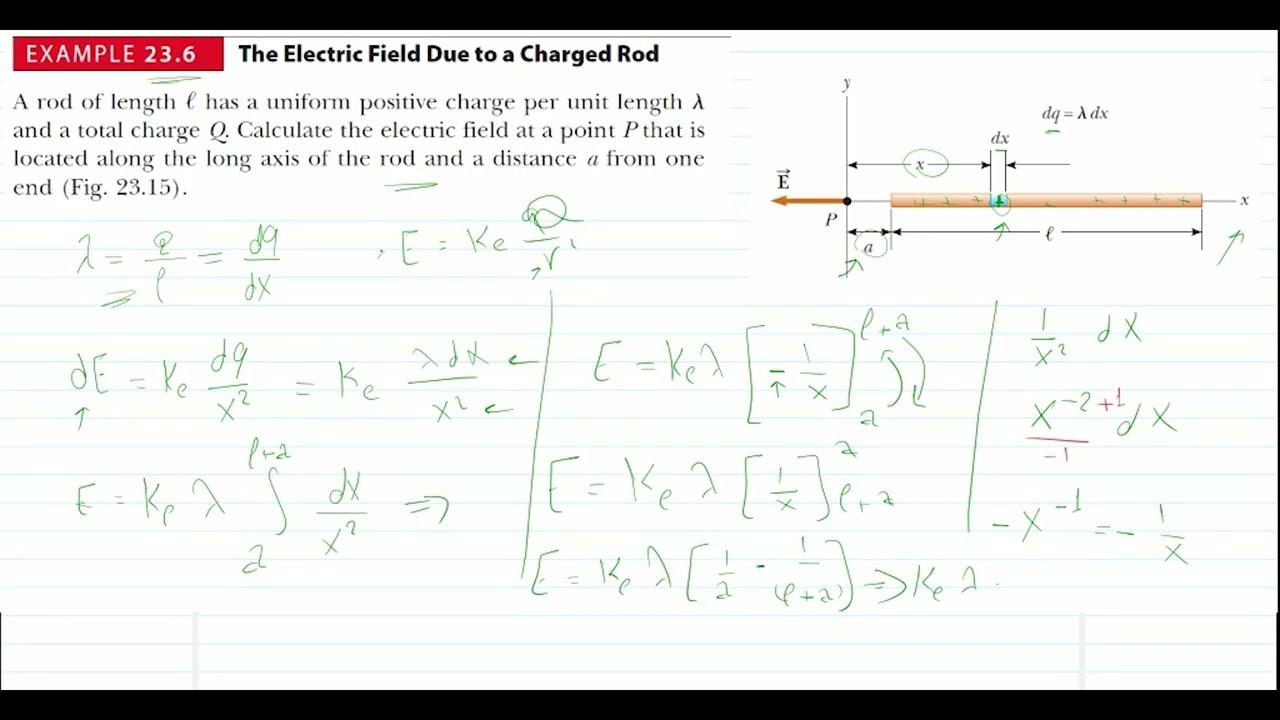 EXAMPLE 23.6 The Electric Field Due to a Charged Rod
A rod of length ℓ has a uniform positive charge per unit length λ
and a total charge Q. Calculate the electric field at a point P that is
located along the long axis of the rod and a distance a from one
end (Fig. 23.15).
y
dq = λ dx
dx
x
E⃗
+ + + + - - + + +
x
P
a
ℓ
λ = Q/ℓ = dq/dx , E = Ke Q/r²
dE = Ke dq/x² = Ke λdx/x²
E = Ke λ ∫ₐ^(ℓ+a) dx/x² ⇒
E = Ke λ [- 1/x]ₐ^(ℓ+a)
E = Ke λ [1/x]_(ℓ+a)^a
E = Ke λ [1/a - 1/(ℓ+a)] ⇒ Ke λ
1/x² dx
x^(-2+1)/-1 dx
- x^-1 = - 1/x